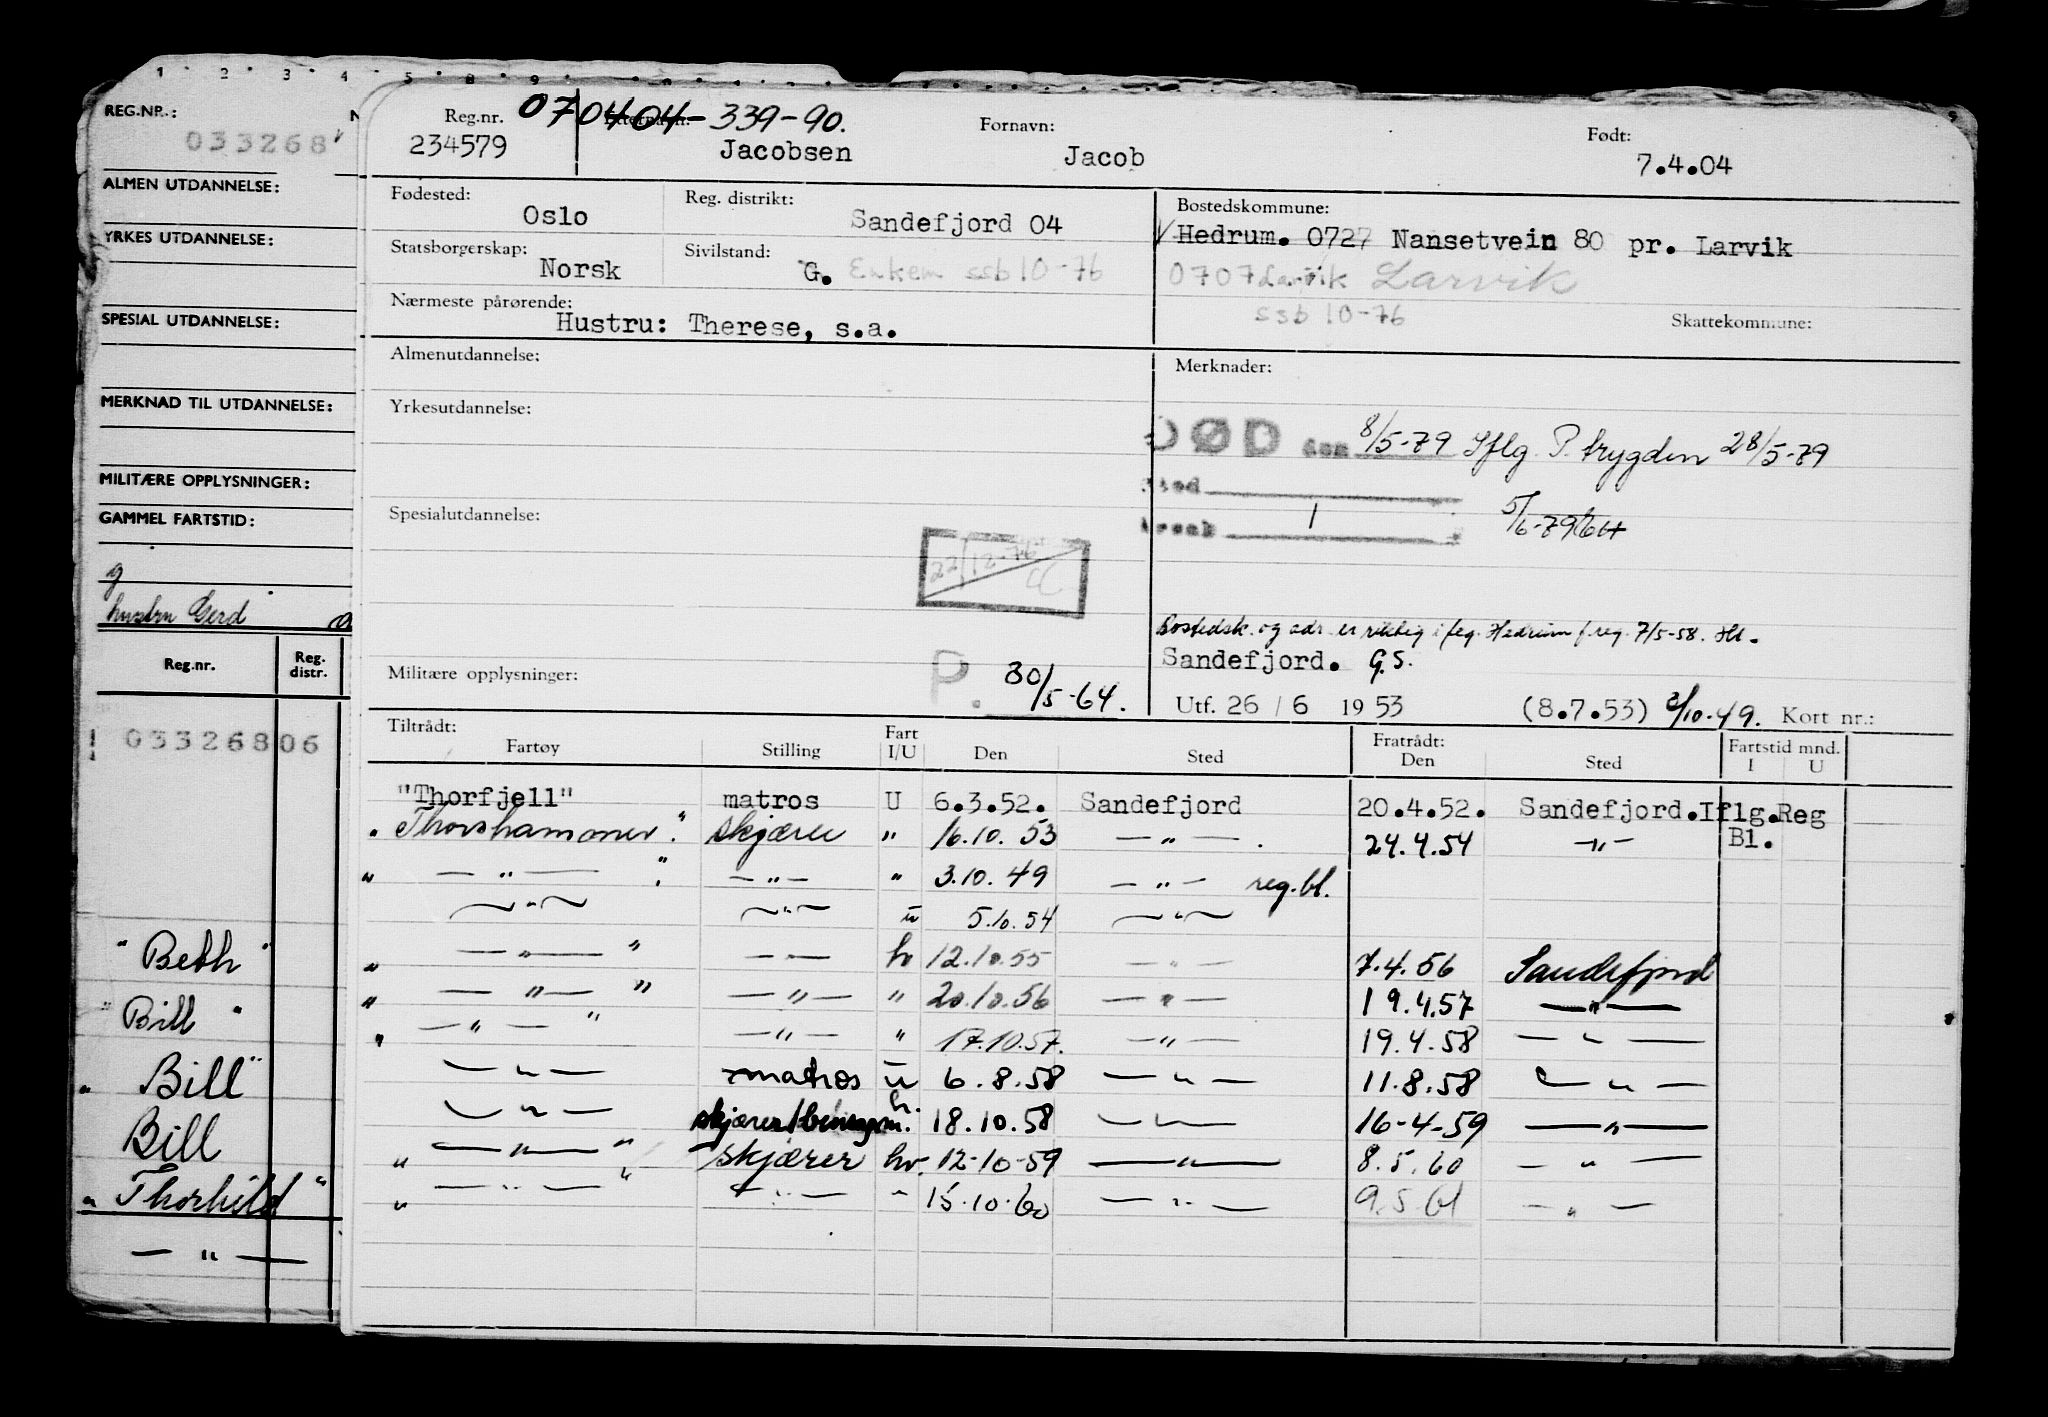 1 2 3 4 5 8 9
REG.NR.:
033268
ALMEN UTDANNELSE:
YRKES UTDANNELSE:
SPESIAL UTDANNELSE:
MERKNAD TIL UTDANNELSE:
MILITÆRE OPPLYSNINGER:
GAMMEL FARTSTID:
g
hustru Gerd
Reg.nr. Reg. distr.
03326806
"Beth"
"Bill"
"Bill"
Bill
"Thorhild"
— " —
Reg.nr. 070404-339-90. Fornavn: Født:
234579 Jacobsen Jacob 7.4.04
Fødested: Oslo Reg. distrikt: Sandefjord 04 Bostedskommune:
Hedrum. 0727 Nansetvein 80 pr. Larvik
Statsborgerskap: Norsk Sivilstand: G. Enkem ssb 10-76 0707 Larvik Larvik
ssb 10-76
Nærmeste pårørende: Hustru: Therese, s.a. Skattekommune:
Almenutdannelse: Merknader:
Yrkesutdannelse:
DØD den 8/5-79 Iflg. P. trygden 28/5-79
Sted
Årsak 5/6-79
Spesialutdannelse:
22/12-76
Bostedsk. og adr. er riktig i flg. Hedrum f.reg. 7/5-58.
Sandefjord. G.S.
Militære opplysninger: P. 30/5-64.
Utf. 26 / 6 1953 (8.7.53) 3/10.49. Kort nr.:
Tiltrådt: Fratrådt: Fartstid mnd.
Fartøy Stilling Fart I/U Den Sted Den Sted I U
"Thorfjell" matros U 6.3.52. Sandefjord 20.4.52. Sandefjord.Iflg.Reg
"Thorshammer". skjærer " 16.10.53 — " — . 24.4.54 — " — Bl.
" — " — ". — " — " 3.10.49 — " — reg.bl.
— " — — " — u 5.10.54 — " —
" — " — " — " — hv 12.10.55 — " — 7.4.56 Sandefjord
" — " — " — " — " 20.10.56 — " — 19.4.57 — " —
" — " — " — " — " 17.10.57. — " — 19.4.58 — " —
— " — matros u 6.8.58 — " — 11.8.58 — " —
— " — skjærer/ hv. 18.10.58 — " — 16-4-59 — " —
" — " — " skjærer hv. 12-10-59 — " — 8.5.60 — " —
" — " — " — " — " 15.10.60 — " — 9.5.61 — " —